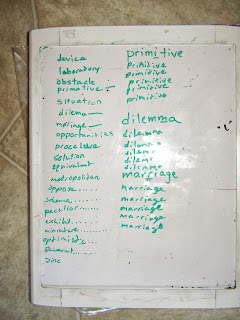 device
laboratory
obstacle
primative
situation
dilema
marrage
opportunities
procedure
solution
equivalent
metropolitan
oppose......
scheme........
peculiar.....
exhibit.....
miniature.....
optimist....
zinc
primitive
primitive
primitive
primitive
primitive
primitive
dilemma
dilemma
dilemma
dilema
dilemma
marriage
marriage
marriage
marriage
marriage
marriage